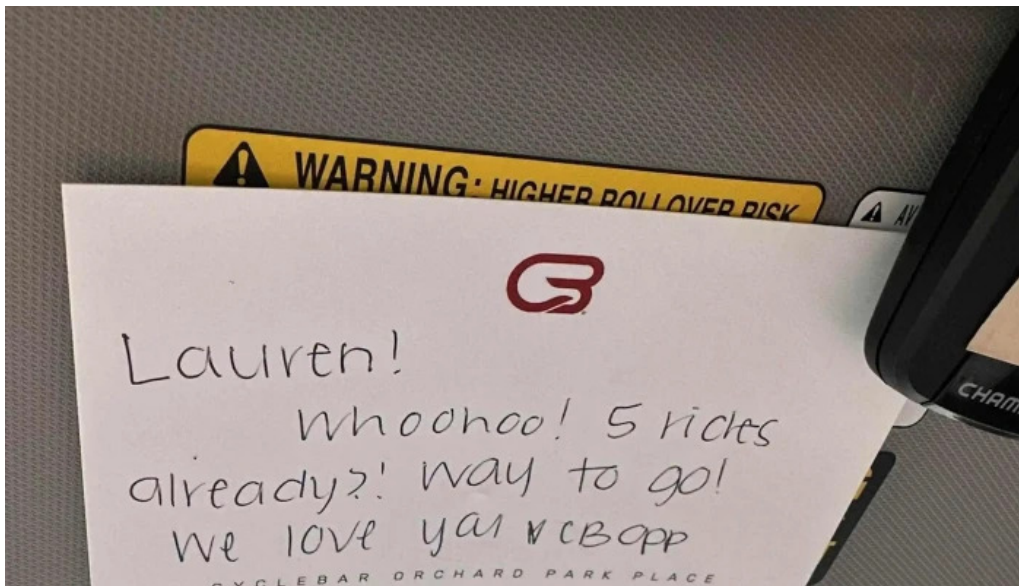 WARNING: HIGHER ROLLOVER RISK
AV
CB
Lauren!
Whoohoo! 5 rides
already?! Way to go!
We love ya! CBOPP
CYCLEBAR ORCHARD PARK PLACE
CHAM